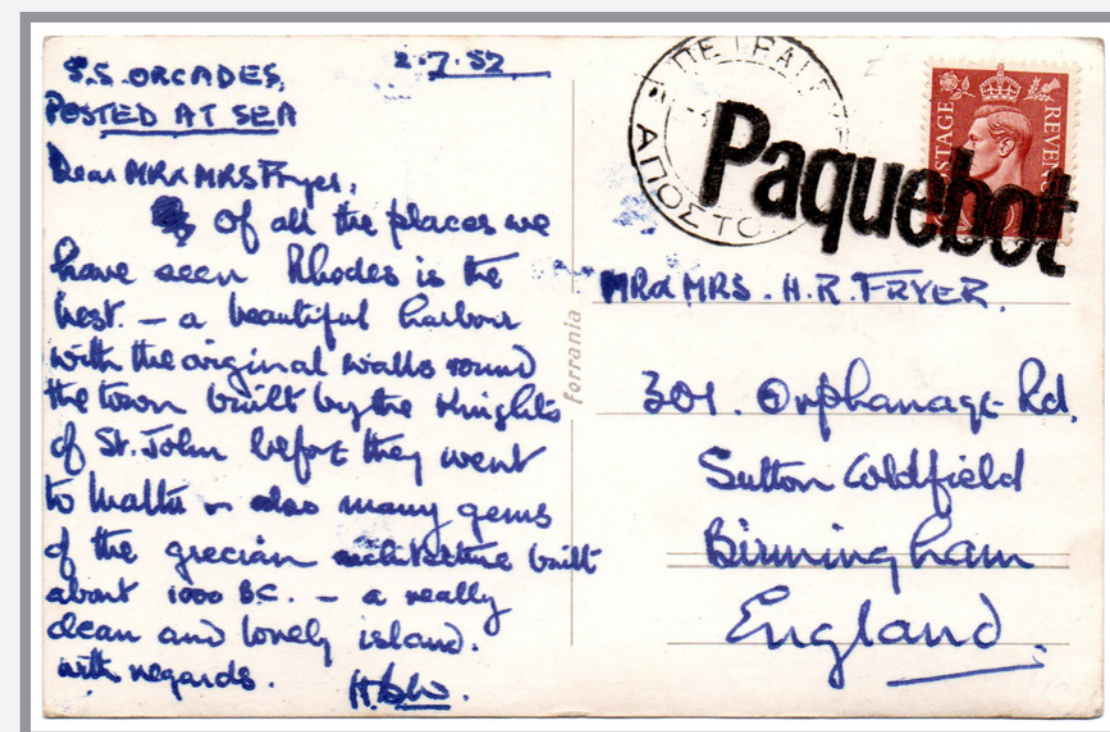 S.S. ORCADES,
2.7.52
POSTED AT SEA
Dear MR & MRS Fryer,
Of all the places we
have seen Rhodes is the
best. – a beautiful harbour
with the original walls round
the town built by the Knights
of St. John before they went
to Malta – also many gems
of the grecian architecture built
about 1000 BC. – a really
clean and lovely island.
with regards.
ferrania
ΠΕΙΡΑΙΕΥΣ
ΑΠΟΣΤΟ
Paquebot
POSTAGE
REVENUE
MR & MRS. H.R. FRYER.
301. Orphanage Rd.
Sutton Coldfield
Birmingham
England.